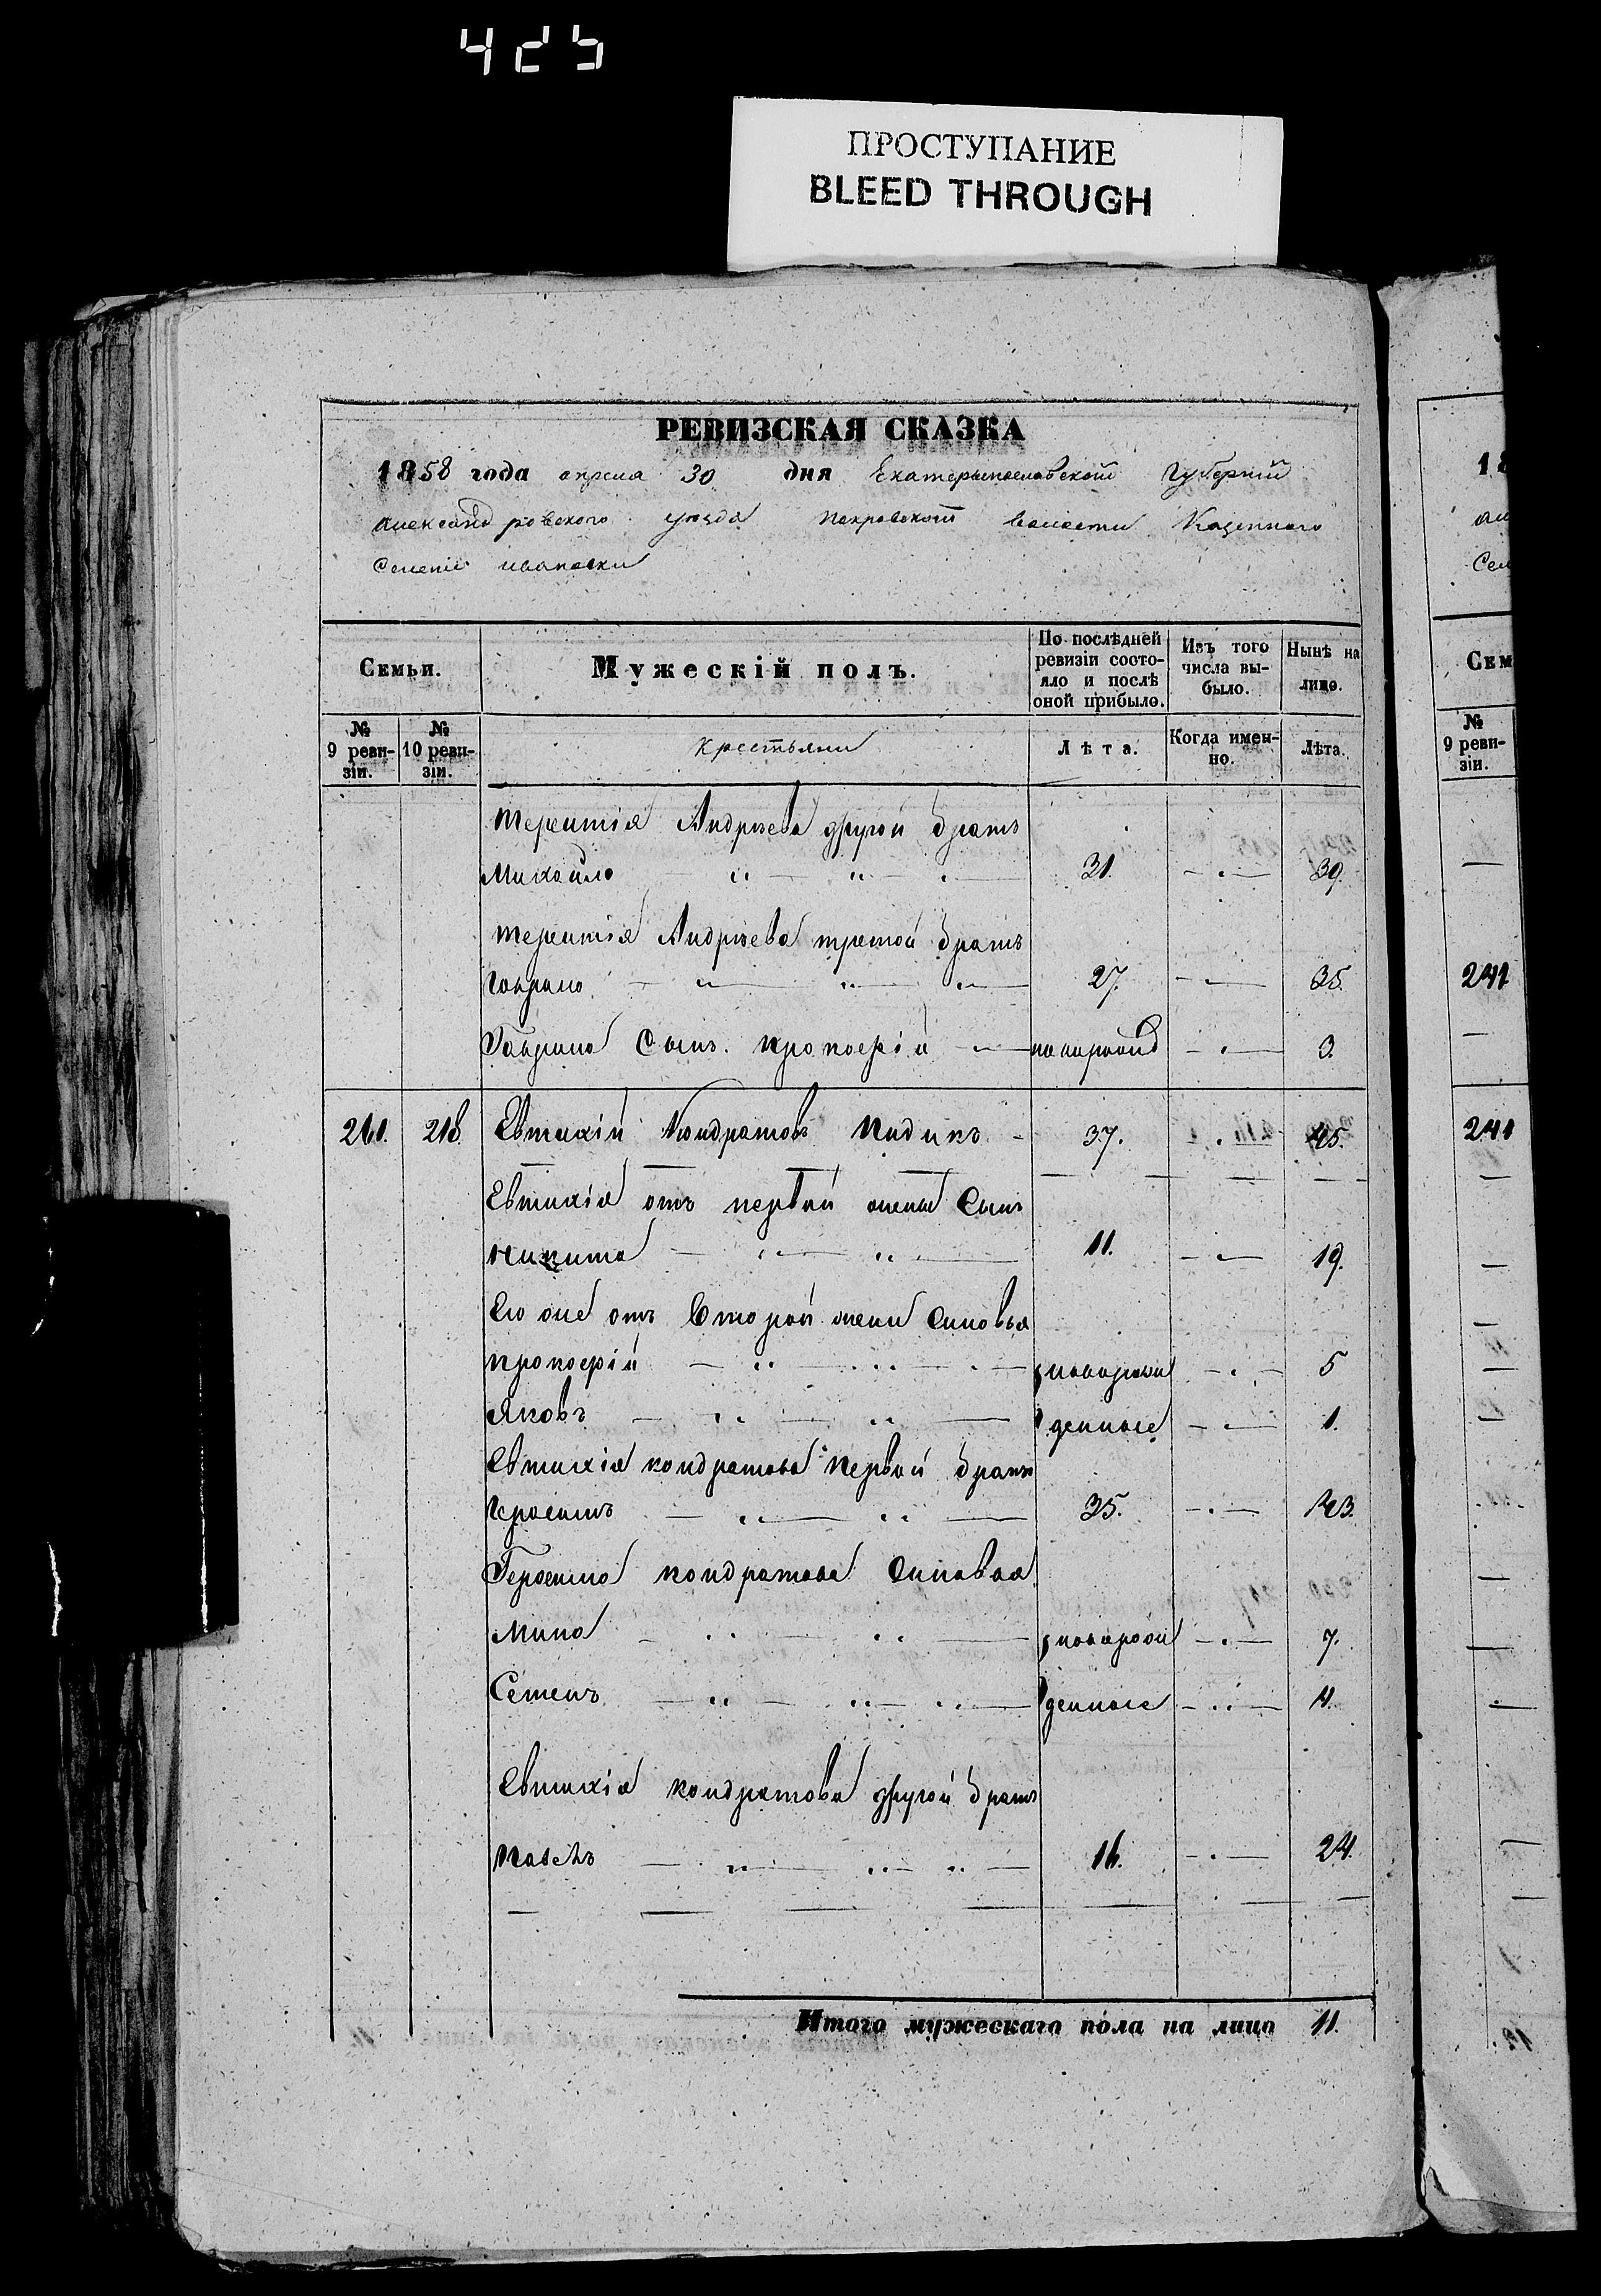 425
ПРОСТУПАНИЕ
BLEED THROUGH
РЕВИЗСКАЯ СКАЗКА
1858 года апреля 30 дня Екатеринославской Губерніи
Александровского уезда Покровской волости Казенного
Селенія Ивановки
Семьи. Мужескій полъ. По послѣдней ревизіи состояло и послѣ оной прибыло. Изъ того числа выбыло. Нынѣ на лицо.
№ 9 ревизіи. № 10 ревизіи. Крестьяни Лѣта. Когда именно. Лѣта.
Терентія Андреева другой братъ
Михайло 31. 39.
Терентія Андреева третой братъ
Гаврило 27. 35.
Гаврила Сынъ Прокофій новорожд 3.
218 Евтихій Кондратовъ 37. 45.
Евтихія отъ первой жены Сынъ
Никита 11. 19.
Его же отъ второй жены Синовья
Прокофій новорож 5
Яковъ денные 1.
Евтихія Кондратова первой братъ
Герасимъ 35. 43.
Герасима Кондратова Синовья
Мина новорож 7.
Семенъ денные 4.
Евтихія Кондратова другой братъ
Павелъ 16. 24.
Итого мужескаго пола на лицо 11.
18
Сел
Сем
№ 9 ревизіи.
241
241